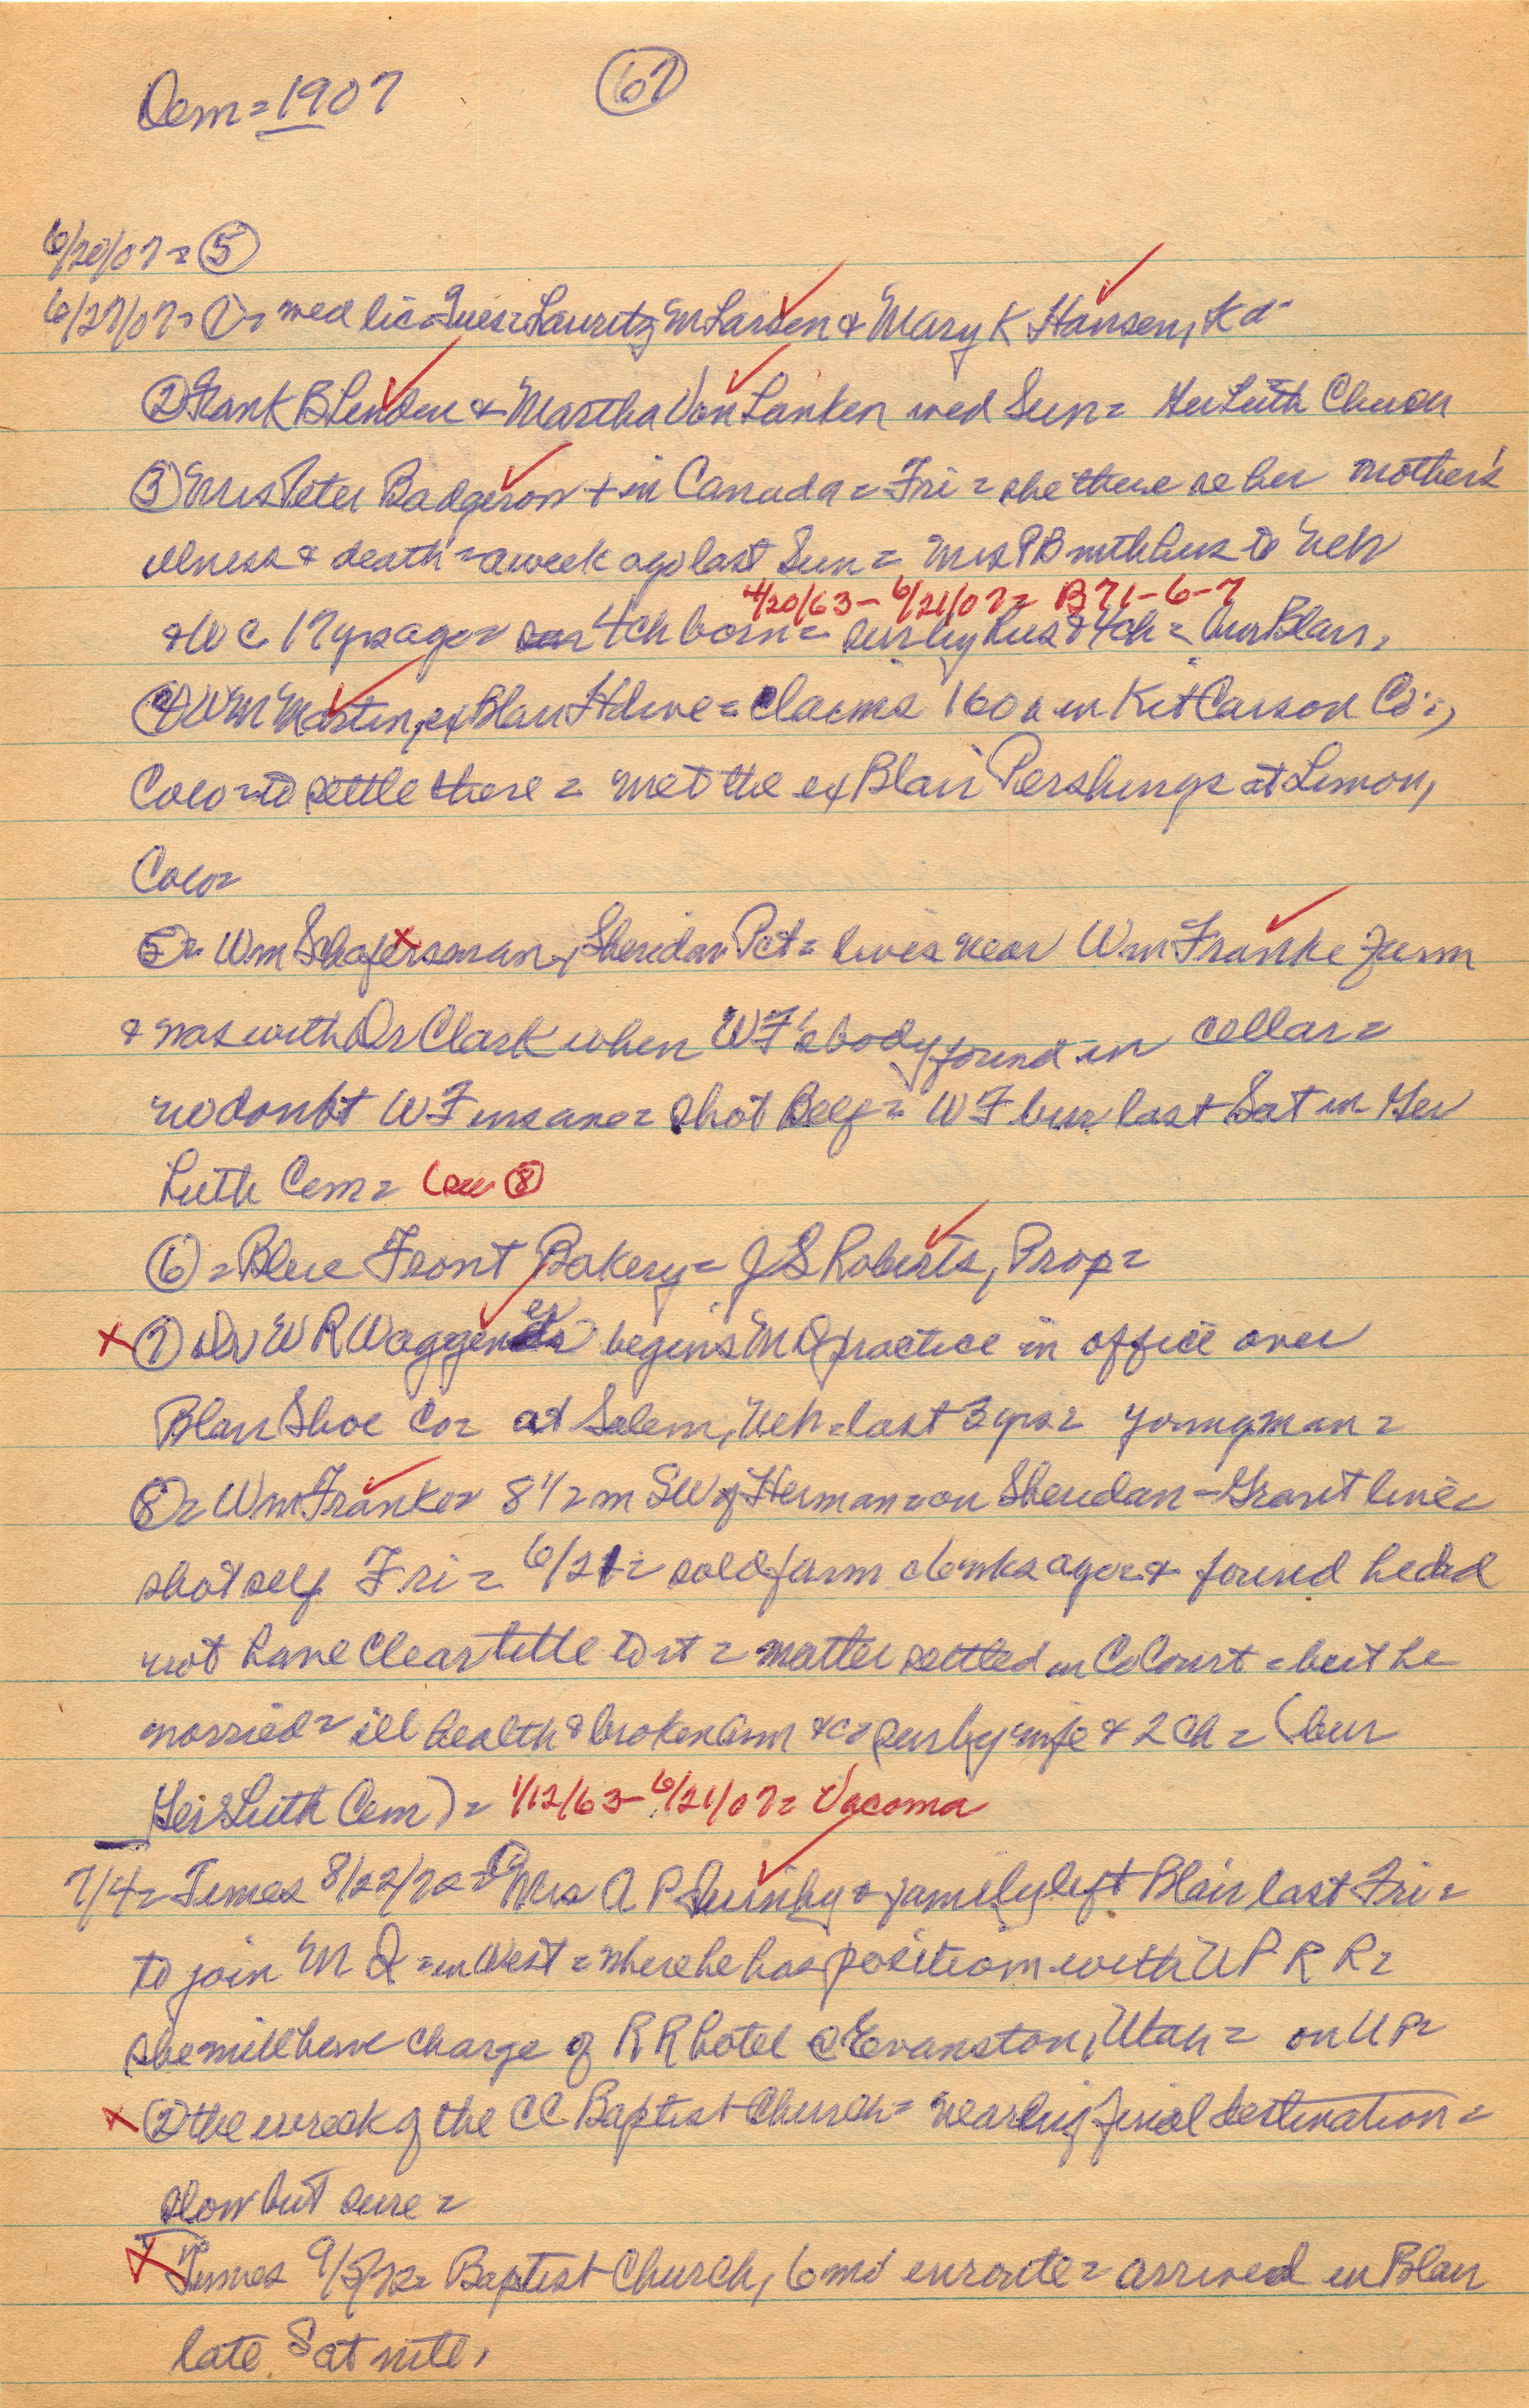 Dem = 1907 (67)
6/20/07 = (5)
6/27/07 = (1) = wed lic = Tues = Lauritz M Larsen & Mary K Hansen, Kd
(2) Frank B Linden & Martha Von Lanken wed Sun = Ger Luth Church
(3) Mrs Peter Badgerow + in Canada = Fri = she there re her mother's
illness & death = a week ago last Sun = Mrs PB with hus to Neb
4/20/63 - 6/21/07 = B 71-6-7
& W C 17 yrs ago = 4 ch born = sur by hus & 4 ch = bur Blair,
(4) WM Martin, ex Blair Hdwe = claims 160 a in Kit Carson Co.,
Colo = to settle there = met the ex Blair Pershings at Limon,
Colo =
(5) = Wm Schafersman, Sheridan Pct = lives near Wm Franke farm
& was with Dr Clark when WF's body found in cellar =
no doubt WF insane = shot self = WF bur last Sat in Ger
Luth Cem = (see (8)
(6) = Blue Front Bakery = JS Roberts, Prop =
x (7) Dr W R Waggener begins MD practice in office over
Blair Shoe Co = at Salem, Neb = last 3 yrs = young man =
(8) = Wm Franke = 8 1/2 m SW of Herman = on Sheridan - Grant line =
shot self Fri = 6/21 = sold farm wks ago = & found he did
not have clear title to it = matter settled in Co Court = but he
worried = ill health & broken arm &c = sur by wife & 2 ch = (bur
Ger Luth Cem) = 1/12/63 - 6/21/07 = Vacoma
7/4 = Times 8/22/72 = (1) Mrs A P Quinby & family left Blair last Fri =
to join M Q = in West = where he has position with U P R R =
she will have charge of R R hotel @ Evanston, Utah = on U P =
x (2) the wreck of the CC Baptist Church = nearing final destination =
slow but sure =
x Times 9/5/72 = Baptist Church, 6 mo enroute = arrived in Blair
late Sat nite,